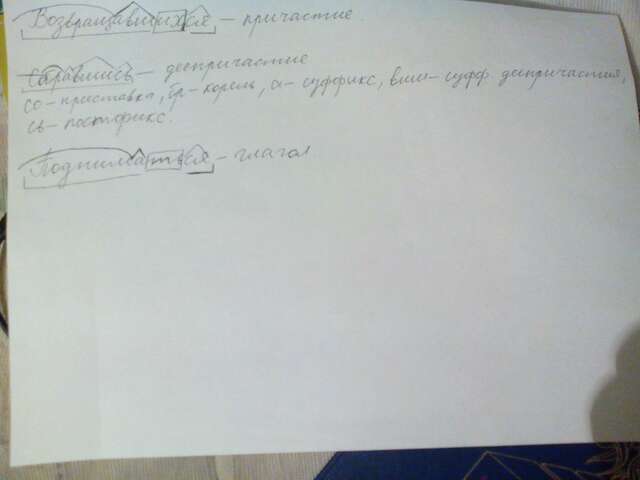 Возвращавшихся – причастие.
Собравшись – деепричастие
со – приставка, бр – корень, а – суффикс, вши – суфф. деепричастия,
сь – постфикс.
Подниматься – глагол